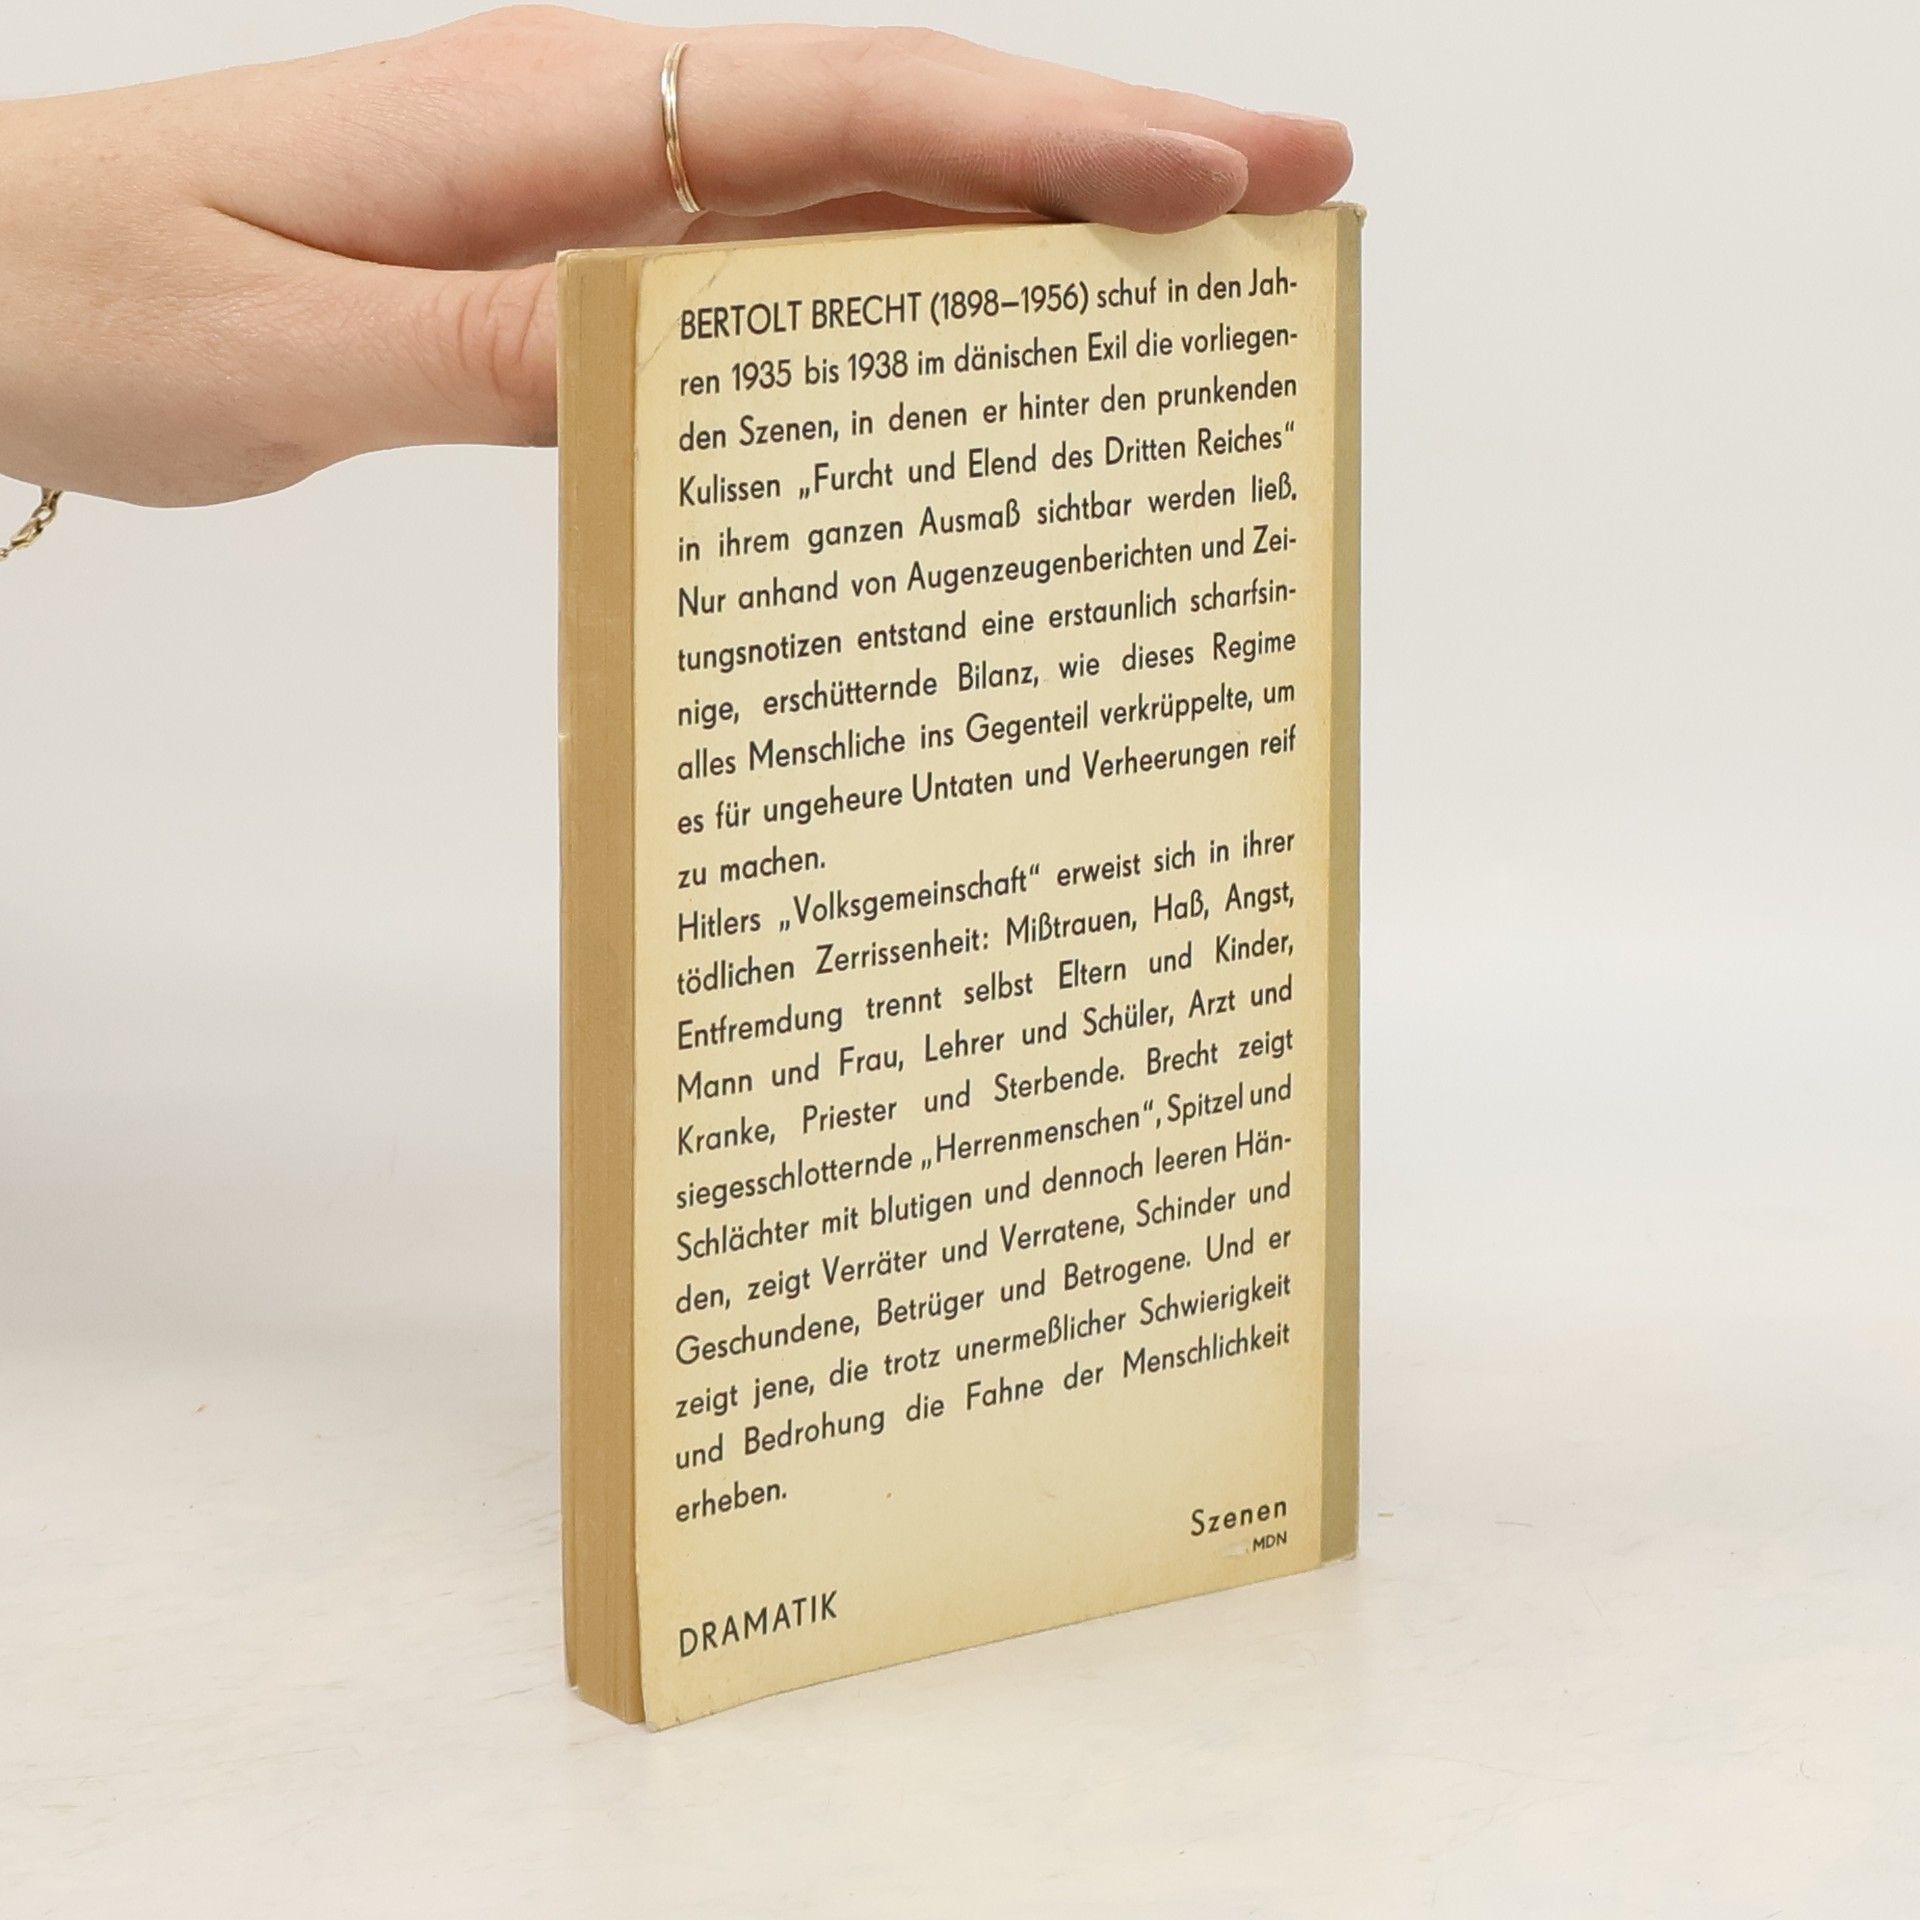 BERTOLT BRECHT (1898–1956) schuf in den Jah-
ren 1935 bis 1938 im dänischen Exil die vorliegen-
den Szenen, in denen er hinter den prunkenden
Kulissen „Furcht und Elend des Dritten Reiches“
in ihrem ganzen Ausmaß sichtbar werden ließ.
Nur anhand von Augenzeugenberichten und Zei-
tungsnotizen entstand eine erstaunlich scharfsin-
nige, erschütternde Bilanz, wie dieses Regime
alles Menschliche ins Gegenteil verkrüppelte, um
es für ungeheure Untaten und Verheerungen reif
zu machen.
Hitlers „Volksgemeinschaft“ erweist sich in ihrer
tödlichen Zerrissenheit: Mißtrauen, Haß, Angst,
Entfremdung trennt selbst Eltern und Kinder,
Mann und Frau, Lehrer und Schüler, Arzt und
Kranke, Priester und Sterbende. Brecht zeigt
siegesschlotternde „Herrenmenschen“, Spitzel und
Schlächter mit blutigen und dennoch leeren Hän-
den, zeigt Verräter und Verratene, Schinder und
Geschundene, Betrüger und Betrogene. Und er
zeigt jene, die trotz unermeßlicher Schwierigkeit
und Bedrohung die Fahne der Menschlichkeit
erheben.
Szenen
MDN
DRAMATIK